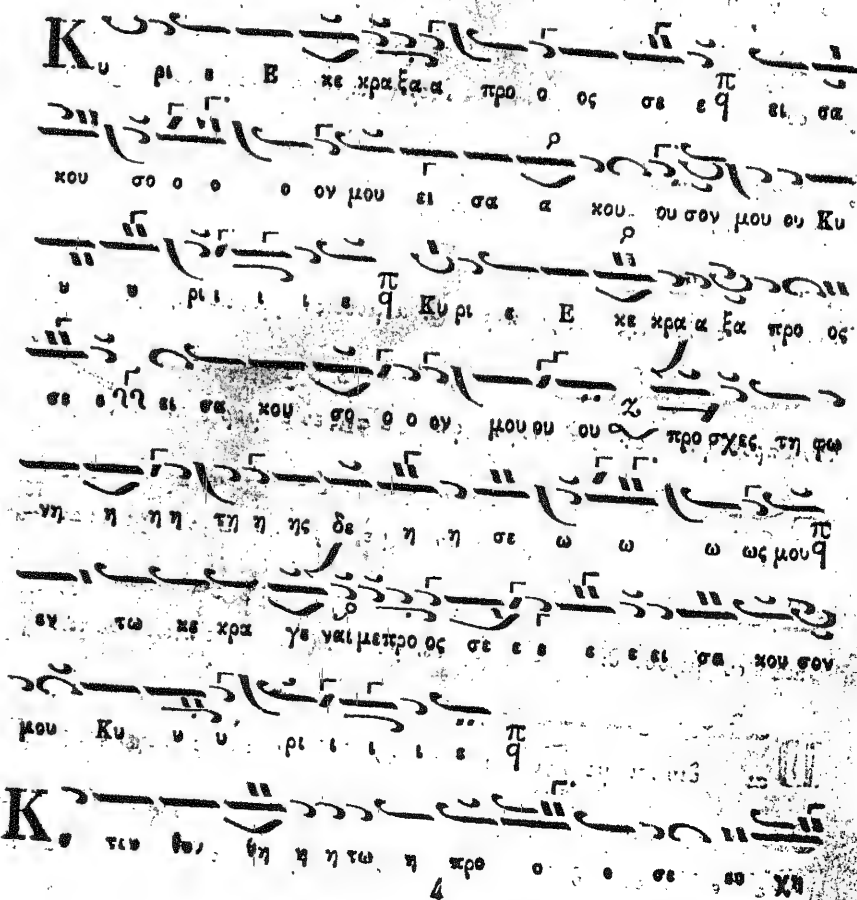 Κυ ρι ε Ε κε κρα ξα α προ ο ος σε ε π q ει σα
κου σο ο ο ο ον μου ει σα α κου ου σον μου ου Κυ
υ υ ρι ι ι ι ε π q Κυ ρι ε Ε κε κρα α ξα προ ος
σε ε ει σα κου σο ο ο ον μου ου ου προ σχες τη φω
νη η η η τη η ης δε η η σε ω ω ω ως μου π q
εν τω κε κρα γε ναι με προ ος σε ε ε ε ε ει σα κου σον
μου Κυ υ υ ρι ι ι ι ε π q
Κ α τευ θυν θη η η τω η προ ο ο σε ευ χη